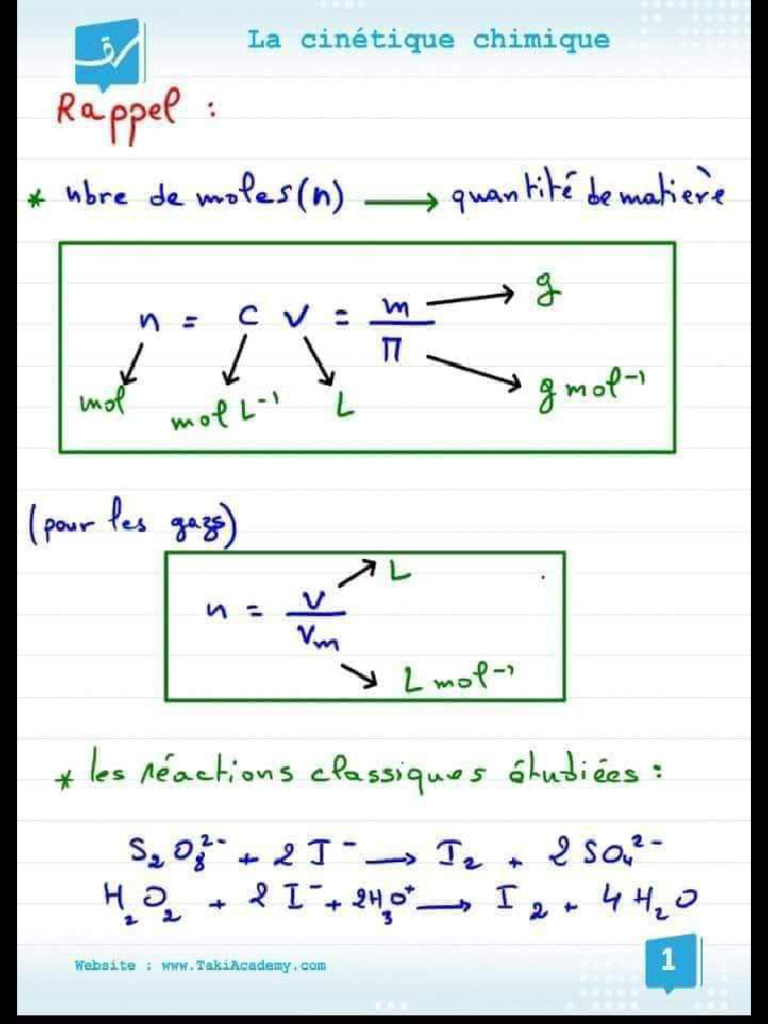 La cinétique chimique
Rappel :
* nbre de moles(n) → quantité de matière
n = C V = m/M
g
mol
mol L⁻¹
L
g mol⁻¹
(pour les gazs)
n = V/Vm
L
L mol⁻¹
* les réactions classiques étudiées :
S₂O₈²⁻ + 2 I⁻ → I₂ + 2 SO₄²⁻
H₂O₂ + 2 I⁻ + 2H₃O⁺ → I₂ + 4 H₂O
Website : www.TakiAcademy.com
1